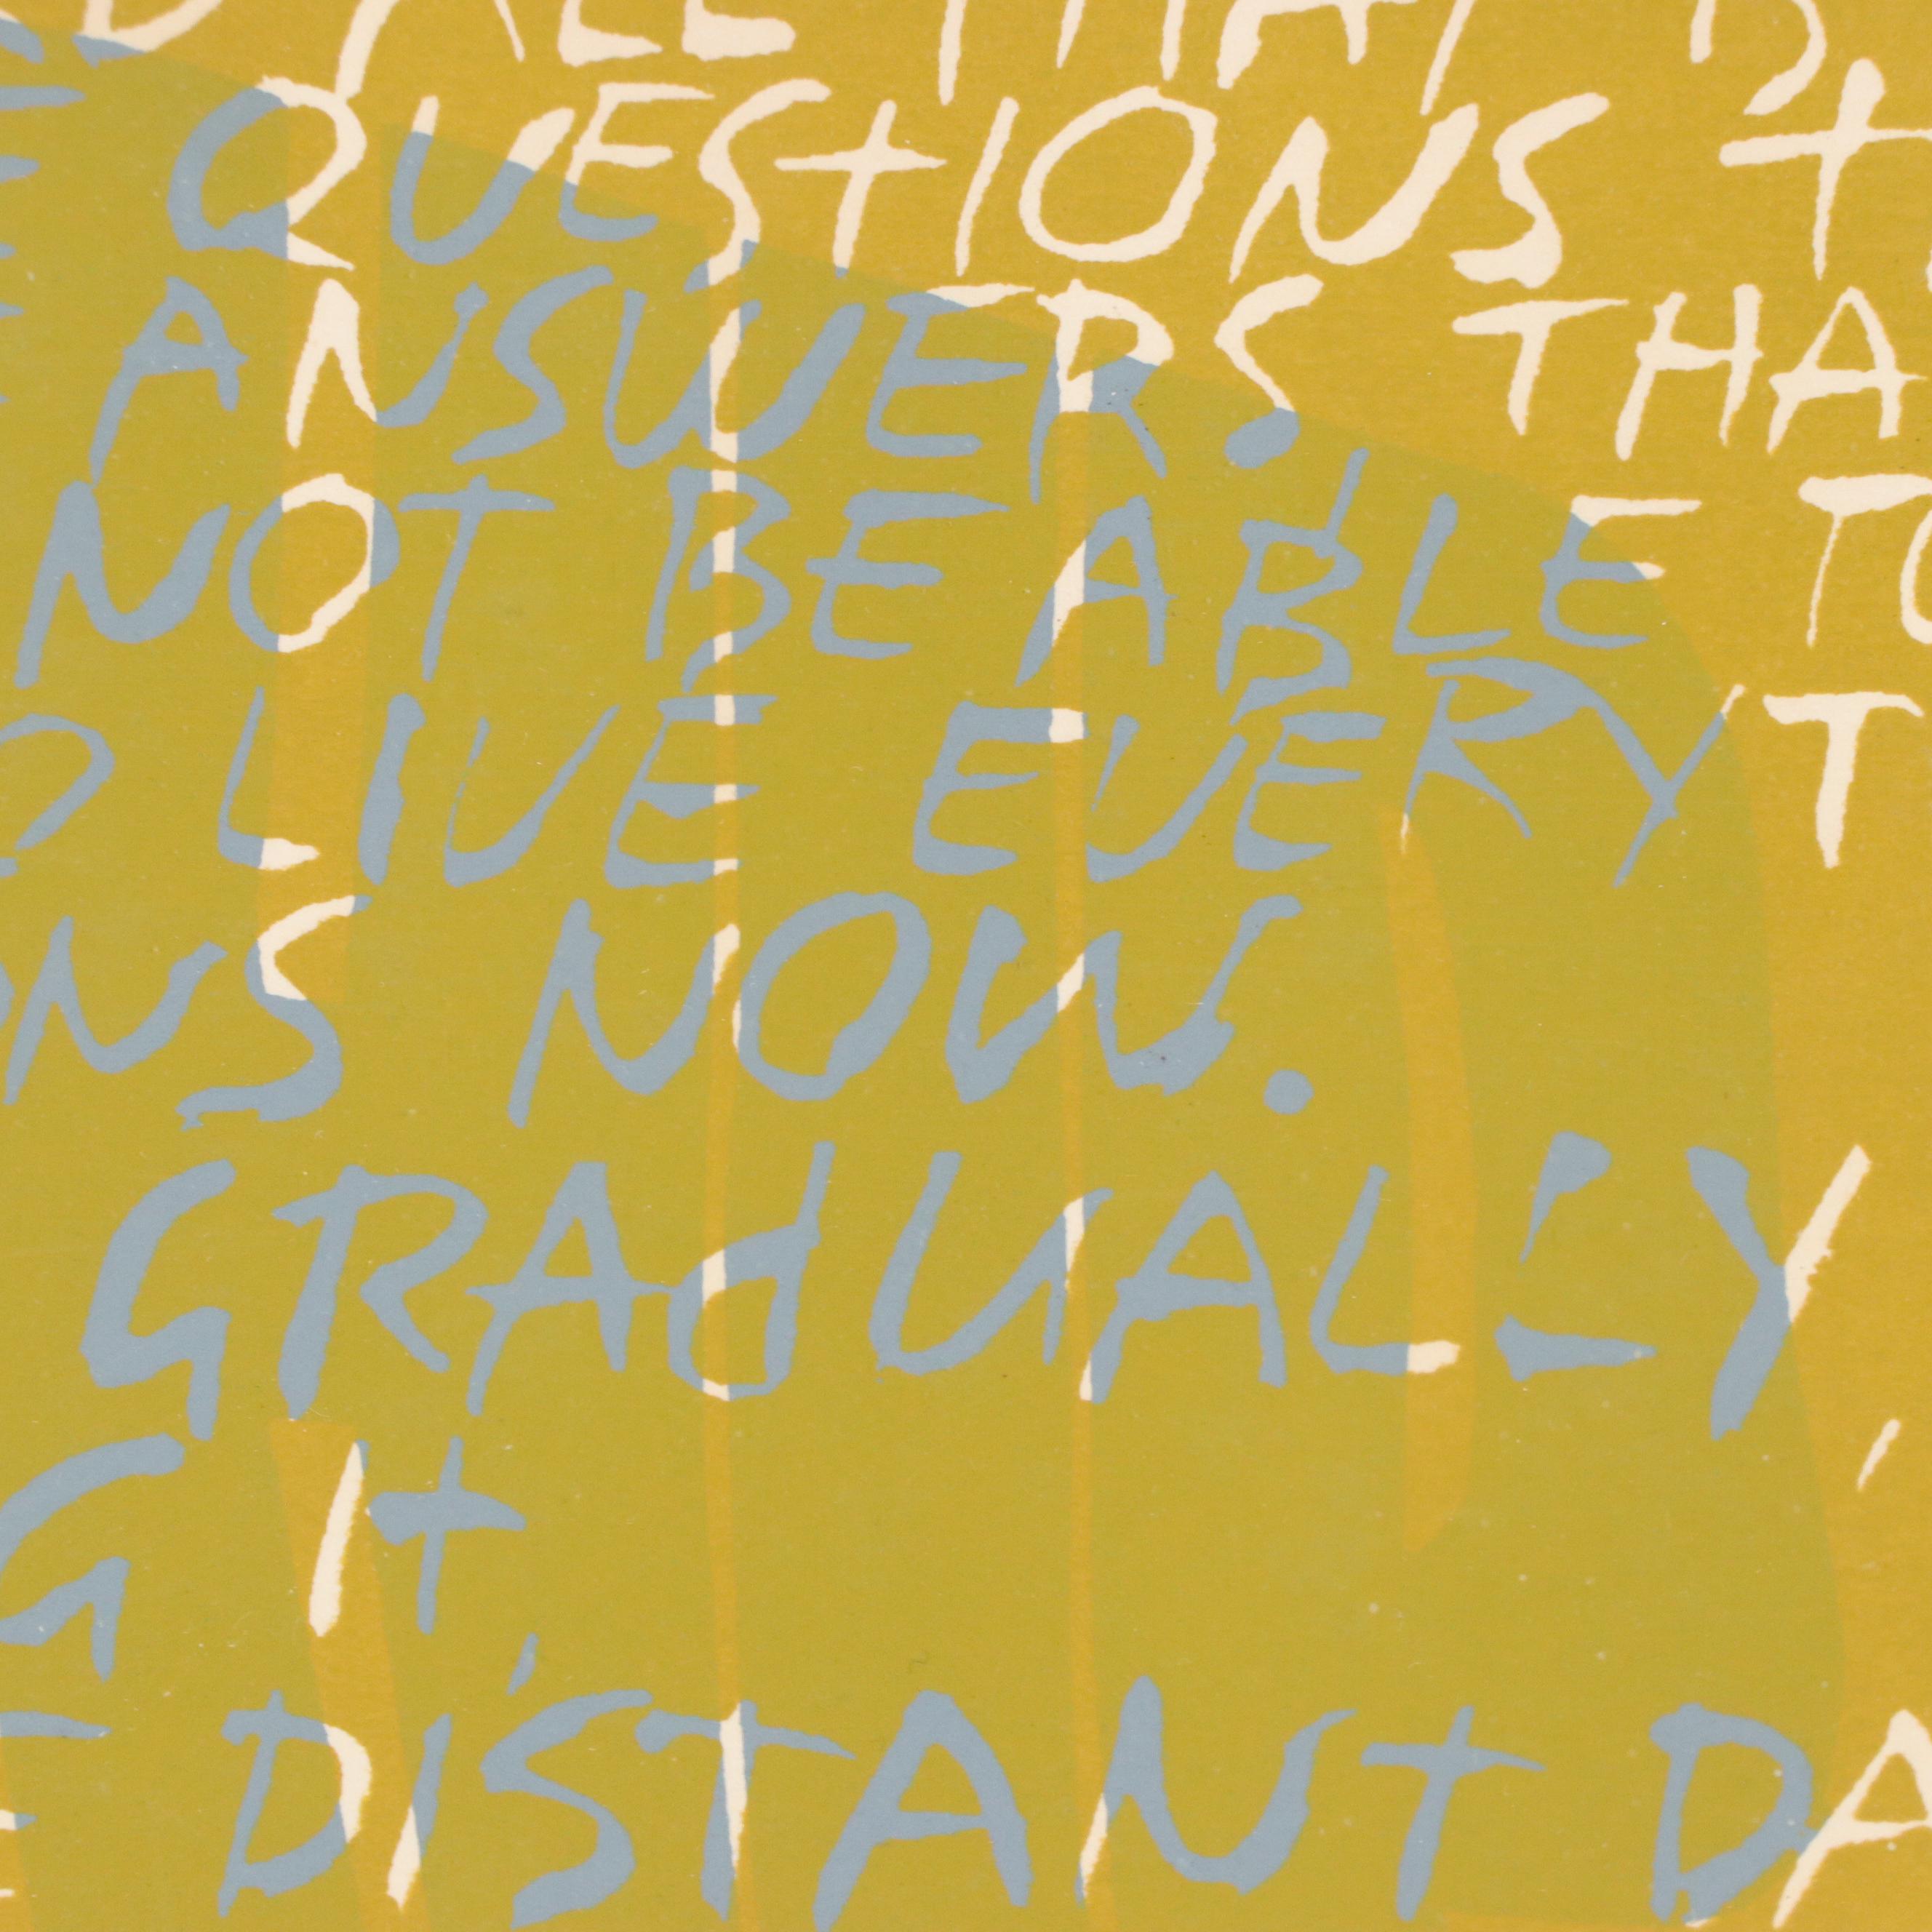 ALL THAT
QUESTIONS
ANSWERS THA
NOT BE ABLE TO
LIVE EVERY T
NS NOW.
GRADUALLY,
G It,
DISTANT DA